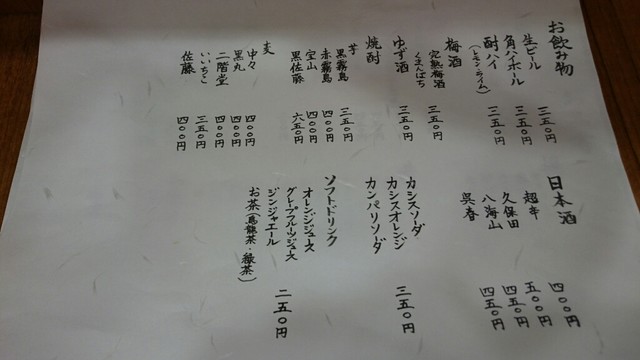 お飲み物
生ビール 三五〇円
角ハイボール 三五〇円
酎ハイ 三五〇円
(レモン・ライム)
梅酒
完熟梅酒 三五〇円
くまんばち
ゆず酒 三五〇円
焼酎
芋
黒霧島 三五〇円
赤霧島 四〇〇円
宝山 四〇〇円
黒佐藤 六五〇円
麦
中々 四〇〇円
黒丸 四〇〇円
二階堂 四〇〇円
いいちこ 三五〇円
佐藤 四〇〇円
日本酒
超辛 四〇〇円
久保田 五〇〇円
八海山 四五〇円
呉春 四五〇円
カシスソーダ
カシスオレンジ 三五〇円
カンパリソーダ
ソフトドリンク
オレンジジュース
グレープフルーツジュース
ジンジャエール 二五〇円
お茶(烏龍茶・緑茶)